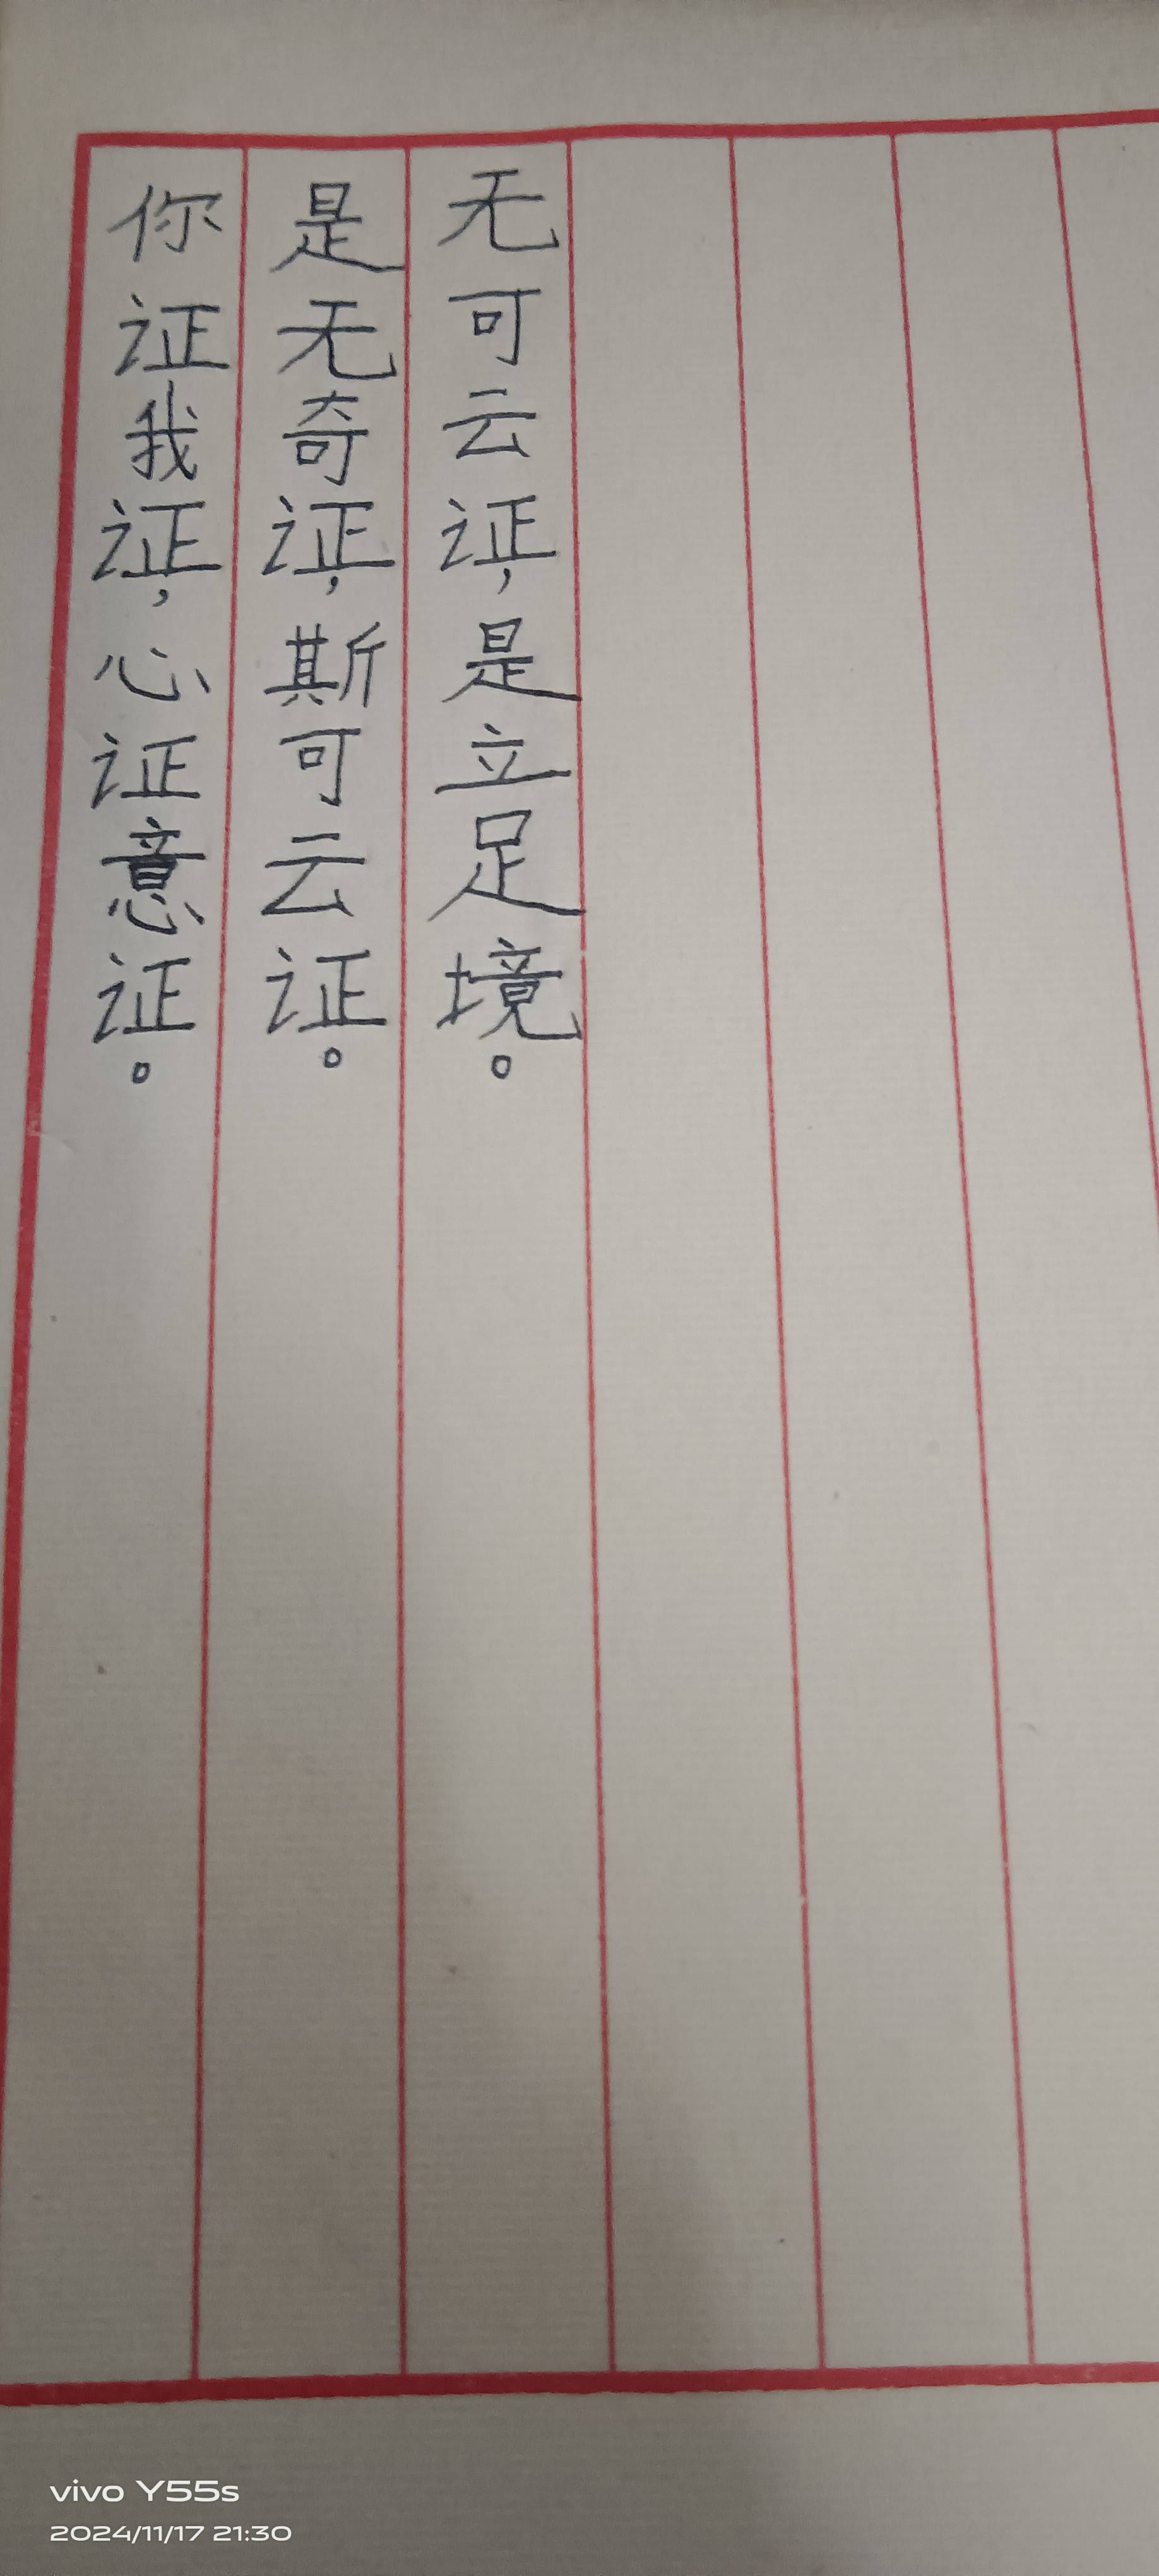 你证我证，心证意证。
是无奇证，斯可云证。
无可云证，是立足境。
vivo Y55s
2024/11/17 21:30